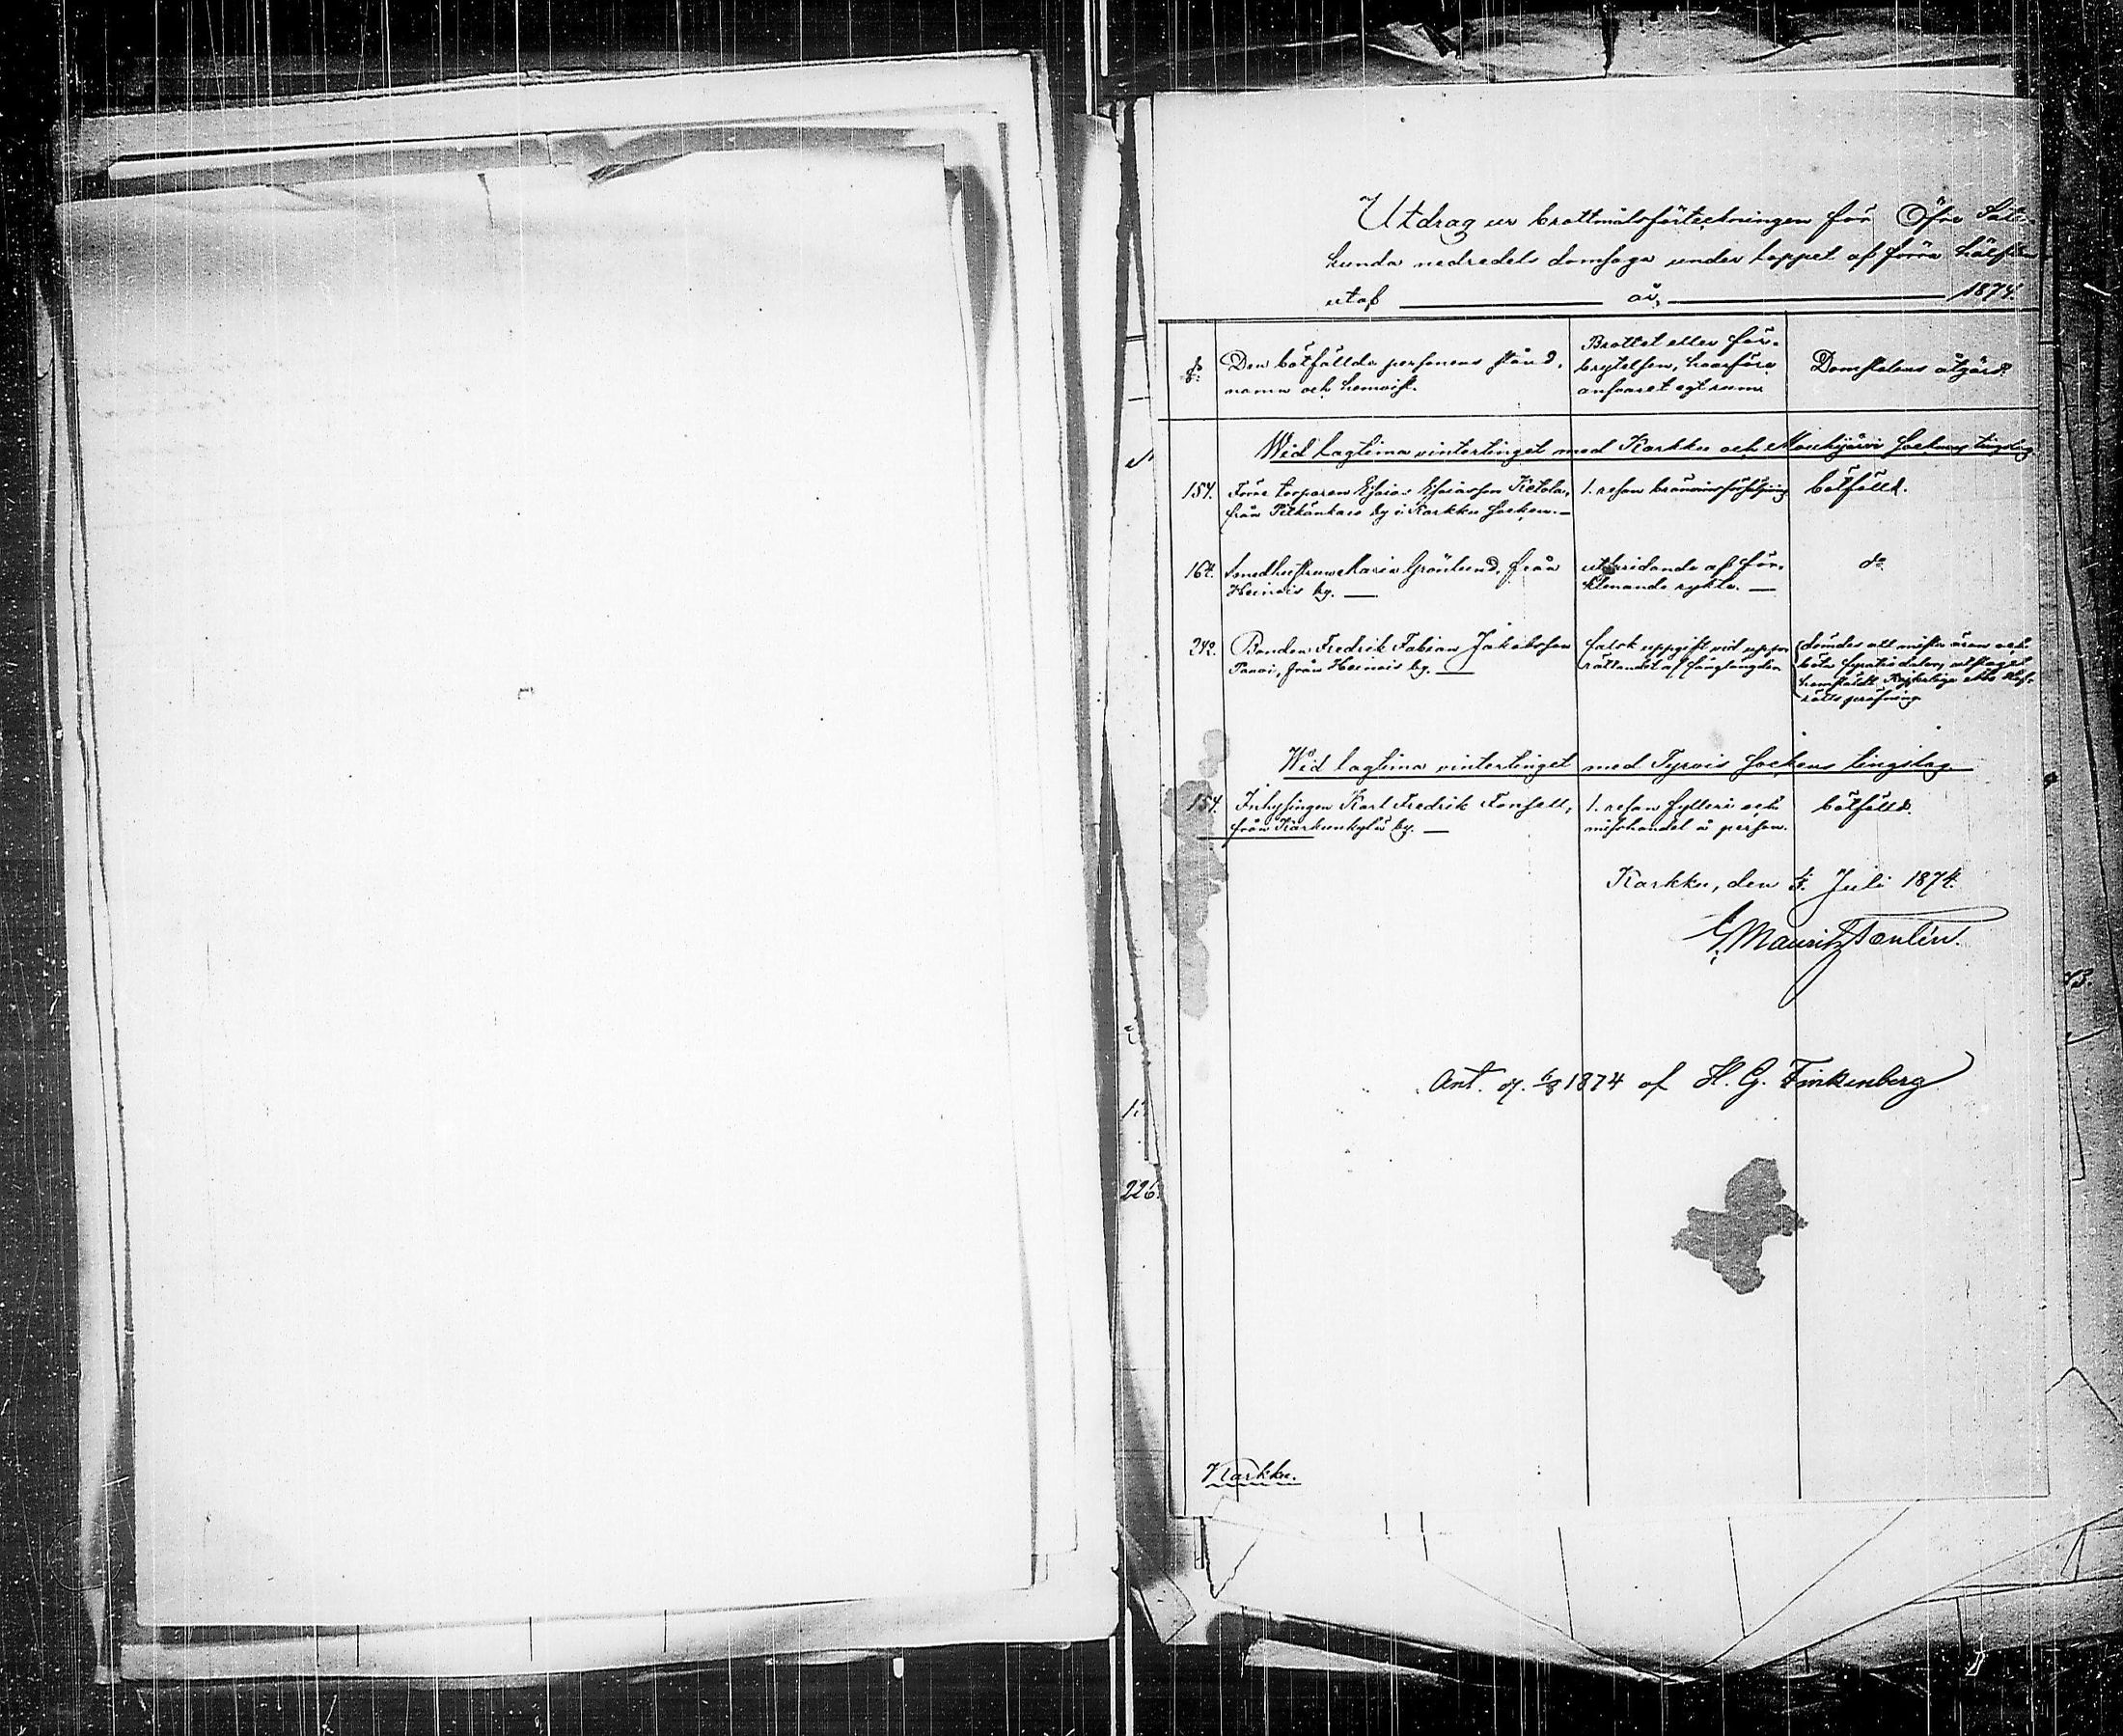 Utdrag ur brottmålsförteckningen för Öfre Sata-
kunda nedredels domsaga under loppet af förra hälften
utaf år 1874.
§: Den bötfällda personens stånd, namn och hemvist.
Brottet eller för-
brytelsen, hvarföre
ansvaret egt rum.
Domstolens åtgärd.
Wid lagtima vintertinget med Karkku och Mouhijärvi socknars tingslag
154. Förre torparen Esaias Esaiasson Ketola,
från Pitkänkare by i Karkku socken.
1. resan bränvinsförsäljning
bötfälld.
164. Smedhustrun Maria Grönlund, från
Heinois by.
utspridande af för-
klenande rykte.
do
242. Bonden Fredrik Fabian Jakobsson
Panoi, från Heinois by.
falsk uppgift vid upp-
rättandet af
dömdes att mista äran och
böta daler, utslaget
hemstäldt Kejserliga Åbo Hof-
rätts pröfning
Wid lagtima vintertinget med Tyrvis sockens tingslag
154. Inhysingen Karl Fredrik Tonsell,
från Kärkunkylä by.
1. resan fylleri och
misshandel å person.
bötfälld.
Karkku, den Juli 1874.
G. Mauritz Tanlin.
Ant. d. 6/8 1874 af H. G. Finkenberg
1.
226.
Karkku.